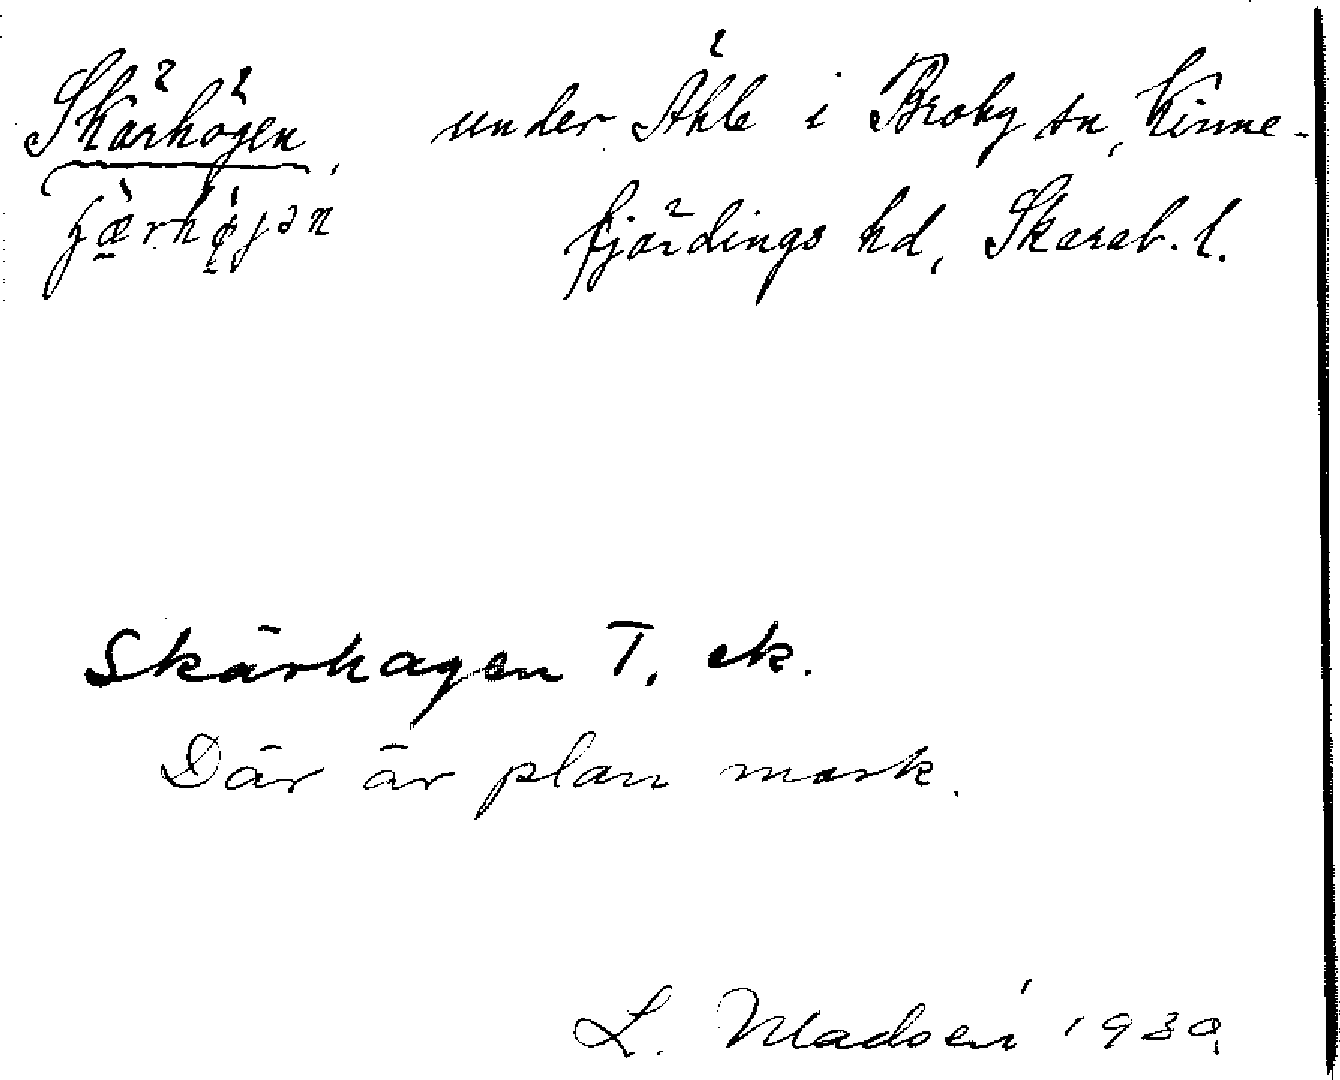 Skärhögen, under Ähle i Broby sn, Kinne-
fjärdings hd, Skarab. l.
Skärhagen T. ek.
Där är plan mark.
L. Madsén 1939